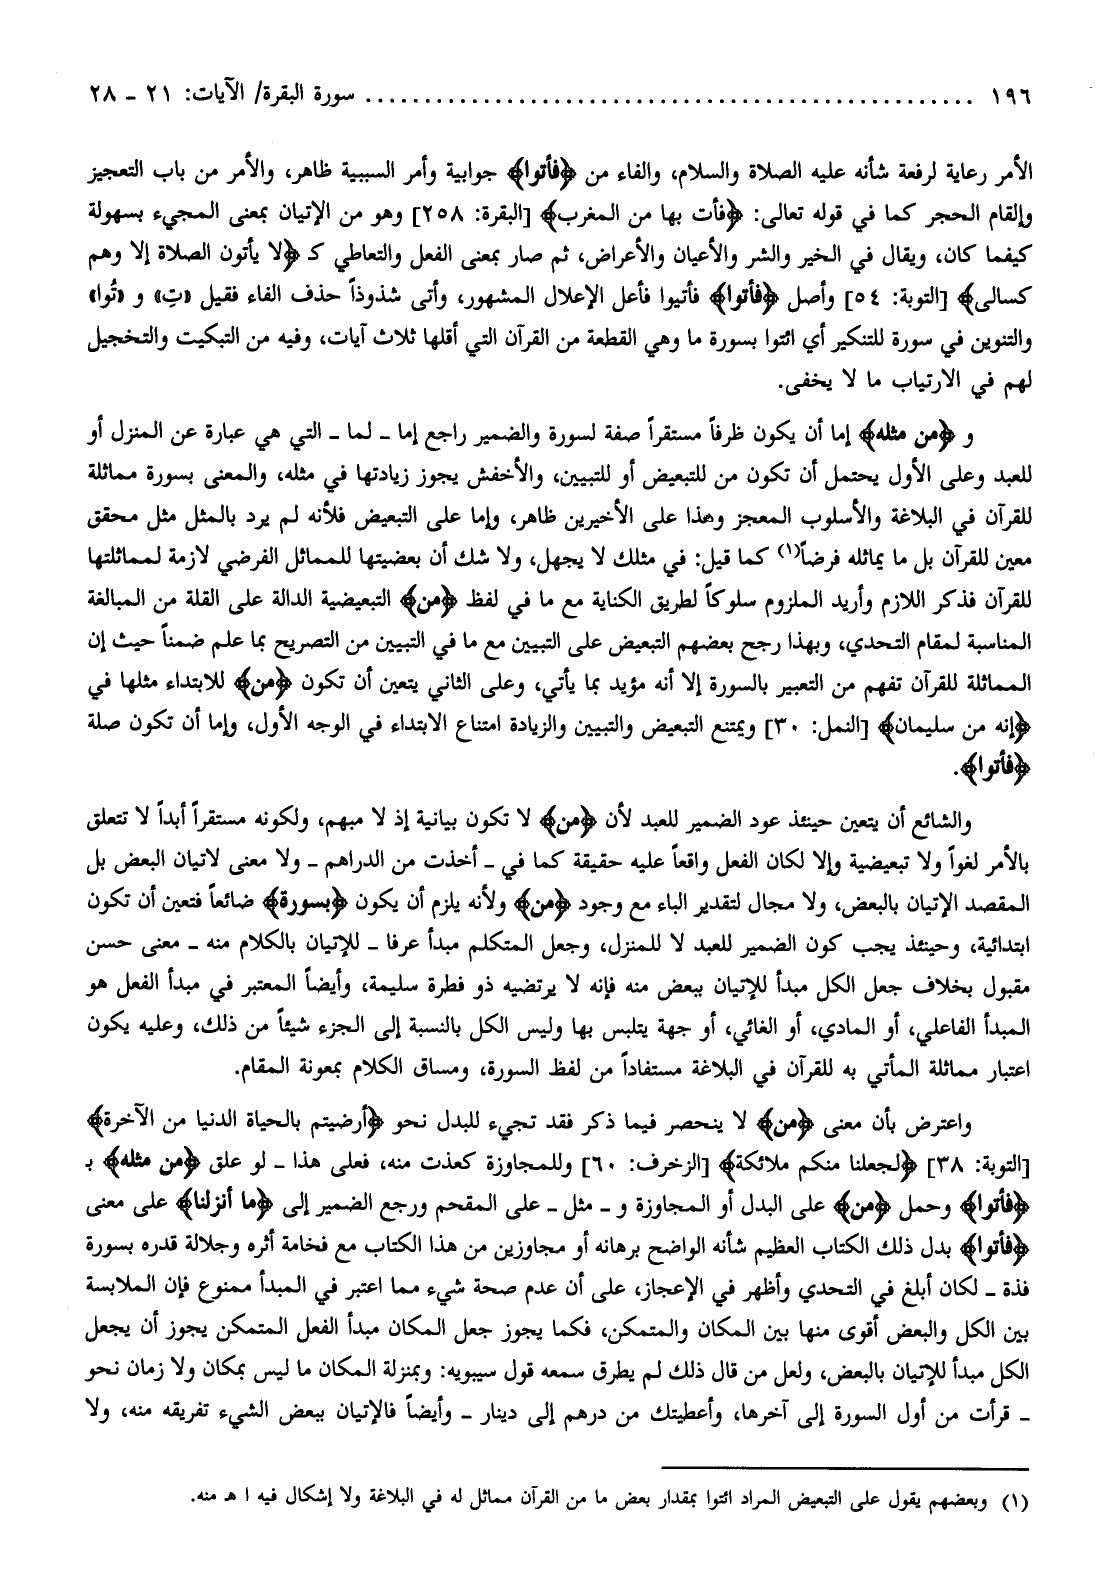 ١٩٦ ................................................ سورة البقرة/ الآيات: ٢١ ـ ٢٨
الأمر رعاية لرفعة شأنه عليه الصلاة والسلام، والفاء من ﴿فأتوا﴾ جوابية وأمر السببية ظاهر، والأمر من باب التعجيز
وإلقام الحجر كما في قوله تعالى: ﴿فأت بها من المغرب﴾ [البقرة: ٢٥٨] وهو من الإتيان بمعنى المجيء بسهولة
كيفما كان، ويقال في الخير والشر والأعيان والأعراض، ثم صار بمعنى الفعل والتعاطي كـ ﴿لا يأتون الصلاة إلا وهم
كسالى﴾ [التوبة: ٥٤] وأصل ﴿فأتوا﴾ فأتيوا فأعل الإعلال المشهور، وأتى شذوذاً حذف الفاء فقيل «تِ» و «تُوا»
والتنوين في سورة للتنكير أي ائتوا بسورة ما وهي القطعة من القرآن التي أقلها ثلاث آيات، وفيه من التبكيت والتخجيل
لهم في الارتياب ما لا يخفى.
و ﴿من مثله﴾ إما أن يكون ظرفاً مستقراً صفة لسورة والضمير راجع إما ـ لما ـ التي هي عبارة عن المنزل أو
للعبد وعلى الأول يحتمل أن تكون من للتبعيض أو للتبيين، والأخفش يجوز زيادتها في مثله، والمعنى بسورة مماثلة
للقرآن في البلاغة والأسلوب المعجز وهذا على الأخيرين ظاهر، وإما على التبعيض فلأنه لم يرد بالمثل مثل محقق
معين للقرآن بل ما يماثله فرضاً(١) كما قيل: في مثلك لا يجهل، ولا شك أن بعضيتها للمماثل الفرضي لازمة لمماثلتها
للقرآن فذكر اللازم وأريد الملزوم سلوكاً لطريق الكناية مع ما في لفظ ﴿من﴾ التبعيضية الدالة على القلة من المبالغة
المناسبة لمقام التحدي، وبهذا رجح بعضهم التبعيض على التبيين مع ما في التبيين من التصريح بما علم ضمناً حيث إن
المماثلة للقرآن تفهم من التعبير بالسورة إلا أنه مؤيد بما يأتي، وعلى الثاني يتعين أن تكون ﴿من﴾ للابتداء مثلها في
﴿إنه من سليمان﴾ [النمل: ٣٠] ويمتنع التبعيض والتبيين والزيادة امتناع الابتداء في الوجه الأول، وإما أن تكون صلة
﴿فأتوا﴾.
والشائع أن يتعين حينئذ عود الضمير للعبد لأن ﴿من﴾ لا تكون بيانية إذ لا مبهم، ولكونه مستقراً أبداً لا تتعلق
بالأمر لغواً ولا تبعيضية وإلا لكان الفعل واقعاً عليه حقيقة كما في ـ أخذت من الدراهم ـ ولا معنى لاتيان البعض بل
المقصد الإتيان بالبعض، ولا مجال لتقدير الباء مع وجود ﴿من﴾ ولأنه يلزم أن يكون ﴿بسورة﴾ ضائعاً فتعين أن تكون
ابتدائية، وحينئذ يجب كون الضمير للعبد لا للمنزل، وجعل المتكلم مبدأ عرفا ـ للإتيان بالكلام منه ـ معنى حسن
مقبول بخلاف جعل الكل مبدأ للإتيان ببعض منه فإنه لا يرتضيه ذو فطرة سليمة، وأيضاً المعتبر في مبدأ الفعل هو
المبدأ الفاعلي، أو المادي، أو الغائي، أو جهة يتلبس بها وليس الكل بالنسبة إلى الجزء شيئاً من ذلك، وعليه يكون
اعتبار مماثلة المأتي به للقرآن في البلاغة مستفاداً من لفظ السورة، ومساق الكلام بمعونة المقام.
واعترض بأن معنى ﴿من﴾ لا ينحصر فيما ذكر فقد تجيء للبدل نحو ﴿أرضيتم بالحياة الدنيا من الآخرة﴾
[التوبة: ٣٨] ﴿لجعلنا منكم ملائكة﴾ [الزخرف: ٦٠] وللمجاوزة كعذت منه، فعلى هذا ـ لو علق ﴿من مثله﴾ بـ
﴿فأتوا﴾ وحمل ﴿من﴾ على البدل أو المجاوزة و ـ مثل ـ على المقحم ورجع الضمير إلى ﴿ما أنزلنا﴾ على معنى
﴿فأتوا﴾ بدل ذلك الكتاب العظيم شأنه الواضح برهانه أو مجاوزين من هذا الكتاب مع فخامة أثره وجلالة قدره بسورة
فذة ـ لكان أبلغ في التحدي وأظهر في الإعجاز، على أن عدم صحة شيء مما اعتبر في المبدأ ممنوع فإن الملابسة
بين الكل والبعض أقوى منها بين المكان والمتمكن، فكما يجوز جعل المكان مبدأ الفعل المتمكن يجوز أن يجعل
الكل مبدأ للإتيان بالبعض، ولعل من قال ذلك لم يطرق سمعه قول سيبويه: وبمنزلة المكان ما ليس بمكان ولا زمان نحو
ـ قرأت من أول السورة إلى آخرها، وأعطيتك من درهم إلى دينار ـ وأيضاً فالإتيان ببعض الشيء تفريقه منه، ولا
(١) وبعضهم يقول على التبعيض المراد ائتوا بمقدار بعض ما من القرآن مماثل له في البلاغة ولا إشكال فيه ا هـ منه.